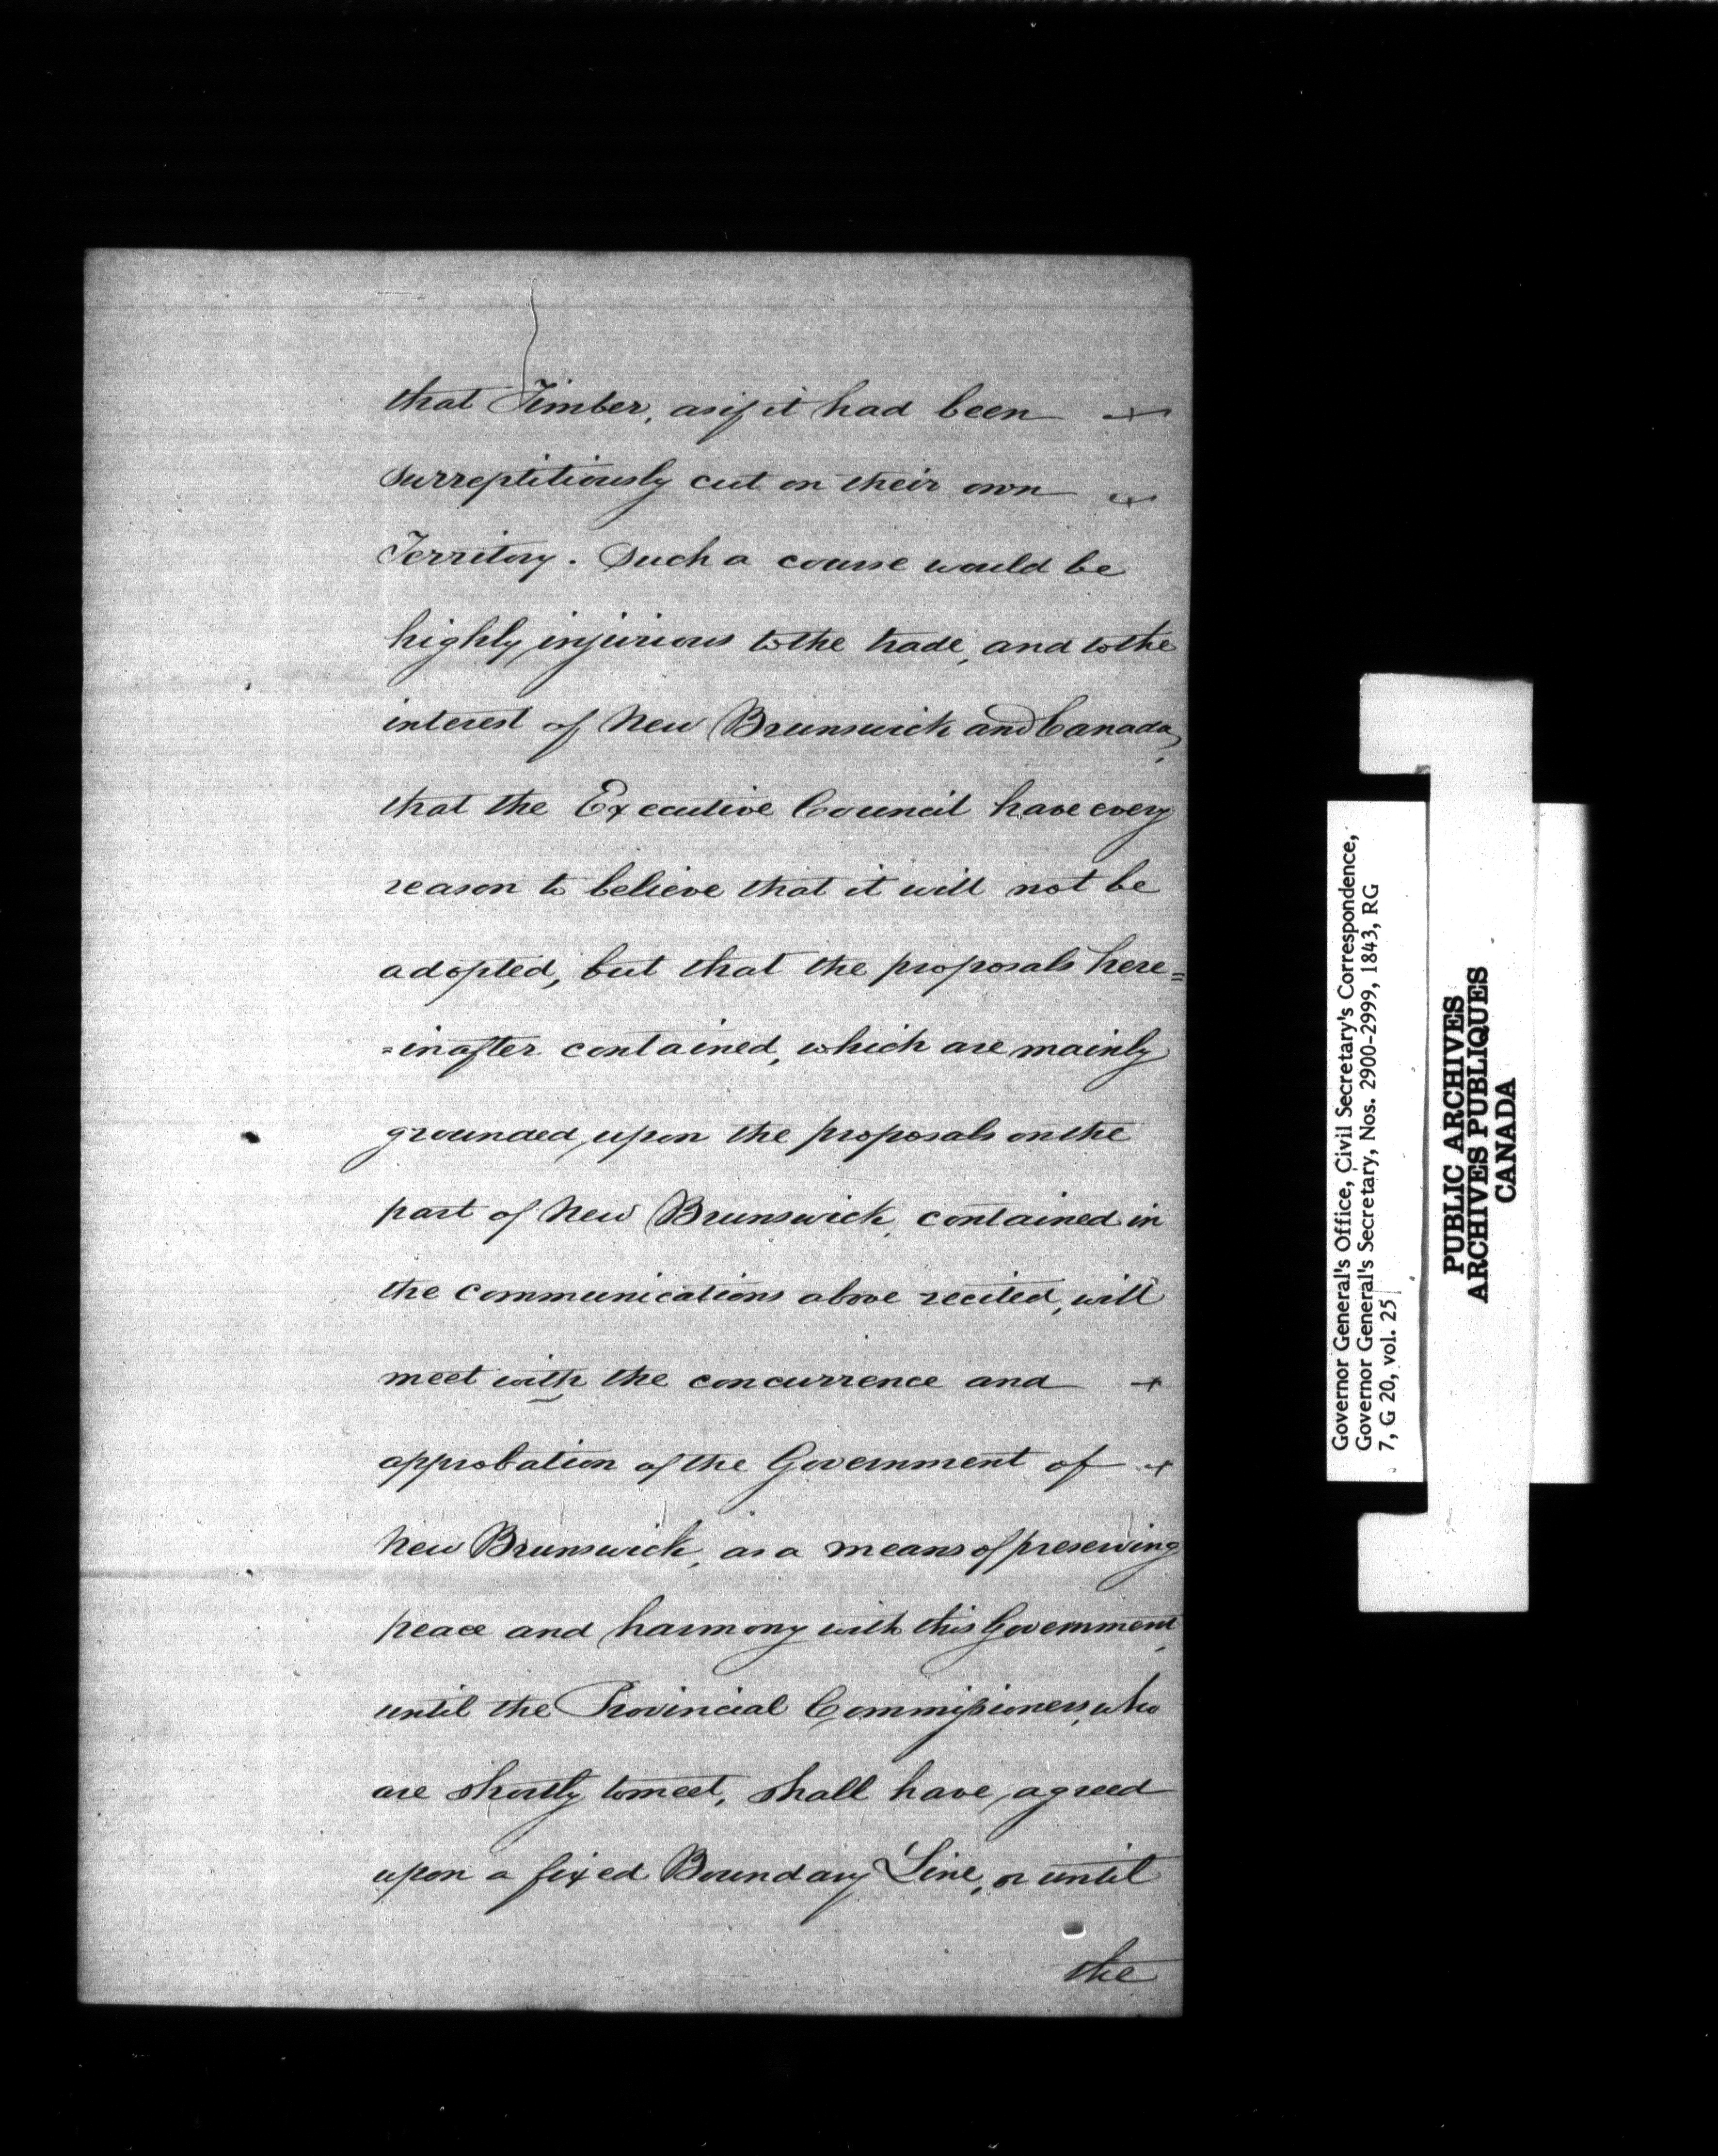 that Timber, as if it had been
surreptitiously cut on their own
Territory. Such a course would be
highly injurious to the trade, and to the
interest of New Brunswick and Canada,
that the Executive Council have every
reason to believe that it will not be
adopted, but that the proposals here=
=inafter contained, which are mainly
grounded upon the proposals on the
part of New Brunswick, contained in
the communications above recited, will
meet with the concurrence and
approbation of the Government of
New Brunswick, as a means of preserving
peace and harmony with this Government,
until the Provincial Commissioners, who
are shortly to meet, shall have agreed
upon a fixed Boundary Line, or until
the
Governor General's Office, Civil Secretary's Correspondence,
Governor General's Secretary, Nos. 2900-2999, 1843, RG
7, G 20, vol. 25
PUBLIC ARCHIVES
ARCHIVES PUBLIQUES
CANADA